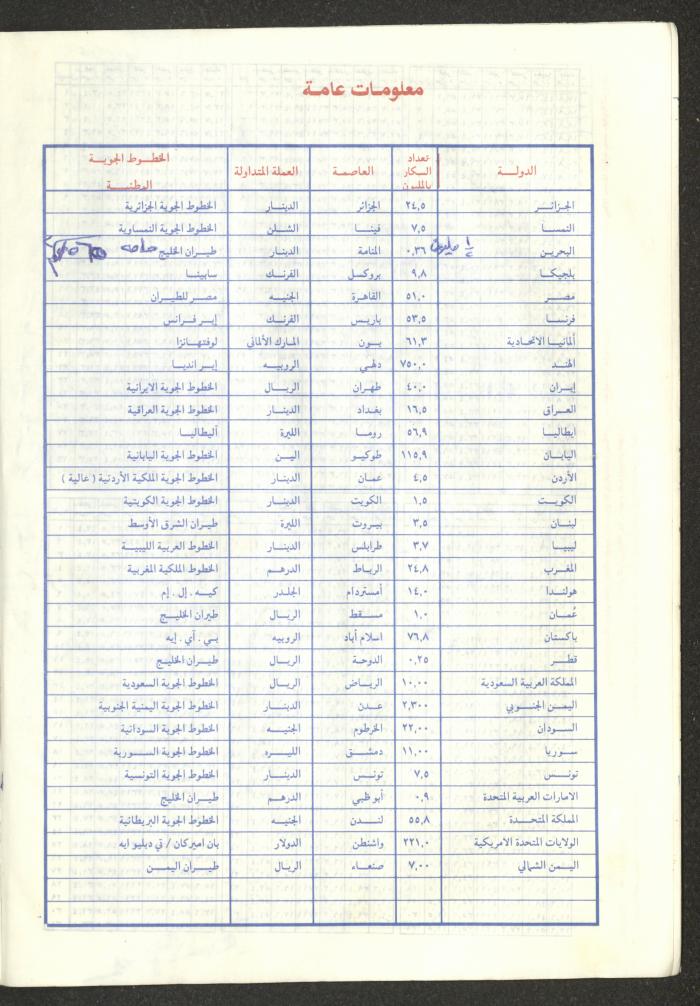 معلومات عامة
الدولة تعداد السكان بالمليون العاصمة العملة المتداولة الخطوط الجوية الوطنية
الجزائر ٢٤,٥ الجزائر الدينار الخطوط الجوية الجزائرية
النمسا ٧,٥ فينا الشلن الخطوط الجوية النمساوية
البحرين ٠,٣٦ المنامة الدينار طيران الخليج
بلجيكا ٩,٨ بروكسل الفرنك سابينا
مصر ٥١,٠ القاهرة الجنيه مصر للطيران
فرنسا ٥٣,٥ باريس الفرنك إير فرانس
ألمانيا الاتحادية ٦١,٣ بون المارك الألماني لوفتهانزا
الهند ٧٥٠,٠ دلهي الروبيه إير انديا
إيران ٤٠,٠ طهران الريال الخطوط الجوية الايرانية
العراق ١٦,٥ بغداد الدينار الخطوط الجوية العراقية
ايطاليا ٥٦,٩ روما الليرة أليطاليا
اليابان ١١٥,٩ طوكيو الين الخطوط الجوية اليابانية
الأردن ٤,٥ عمان الدينار الخطوط الجوية الملكية الأردنية ( عالية )
الكويت ١,٥ الكويت الدينار الخطوط الجوية الكويتية
لبنان ٣,٥ بيروت الليرة طيران الشرق الأوسط
ليبيا ٣,٧ طرابلس الدينار الخطوط العربية الليبية
المغرب ٢٤,٨ الرباط الدرهم الخطوط الملكية المغربية
هولندا ١٤,٠ أمستردام الجلدر كيه . إل . إم
عُمان ١,٠ مسقط الريال طيران الخليج
باكستان ٧٦,٨ اسلام أباد الروبيه بي . آي . إيه
قطر ٠,٢٥ الدوحة الريال طيران الخليج
المملكة العربية السعودية ١٠,٠٠ الرياض الريال الخطوط الجوية السعودية
اليمن الجنوبي ٢,٣٠٠ عدن الدينار الخطوط الجوية اليمنية الجنوبية
السودان ٢٢,٠٠ الخرطوم الجنيه الخطوط الجوية السودانية
سوريا ١١,٠٠ دمشق الليره الخطوط الجوية السورية
تونس ٧,٥ تونس الدينار الخطوط الجوية التونسية
الامارات العربية المتحدة ٠,٩ أبو ظبي الدرهم طيران الخليج
المملكة المتحدة ٥٥,٨ لندن الجنيه الخطوط الجوية البريطانية
الولايات المتحدة الامريكية ٢٢١,٠ واشنطن الدولار بان اميركان / تي دبليو ايه
اليمن الشمالي ٧,٠٠ صنعاء الريال طيران اليمن